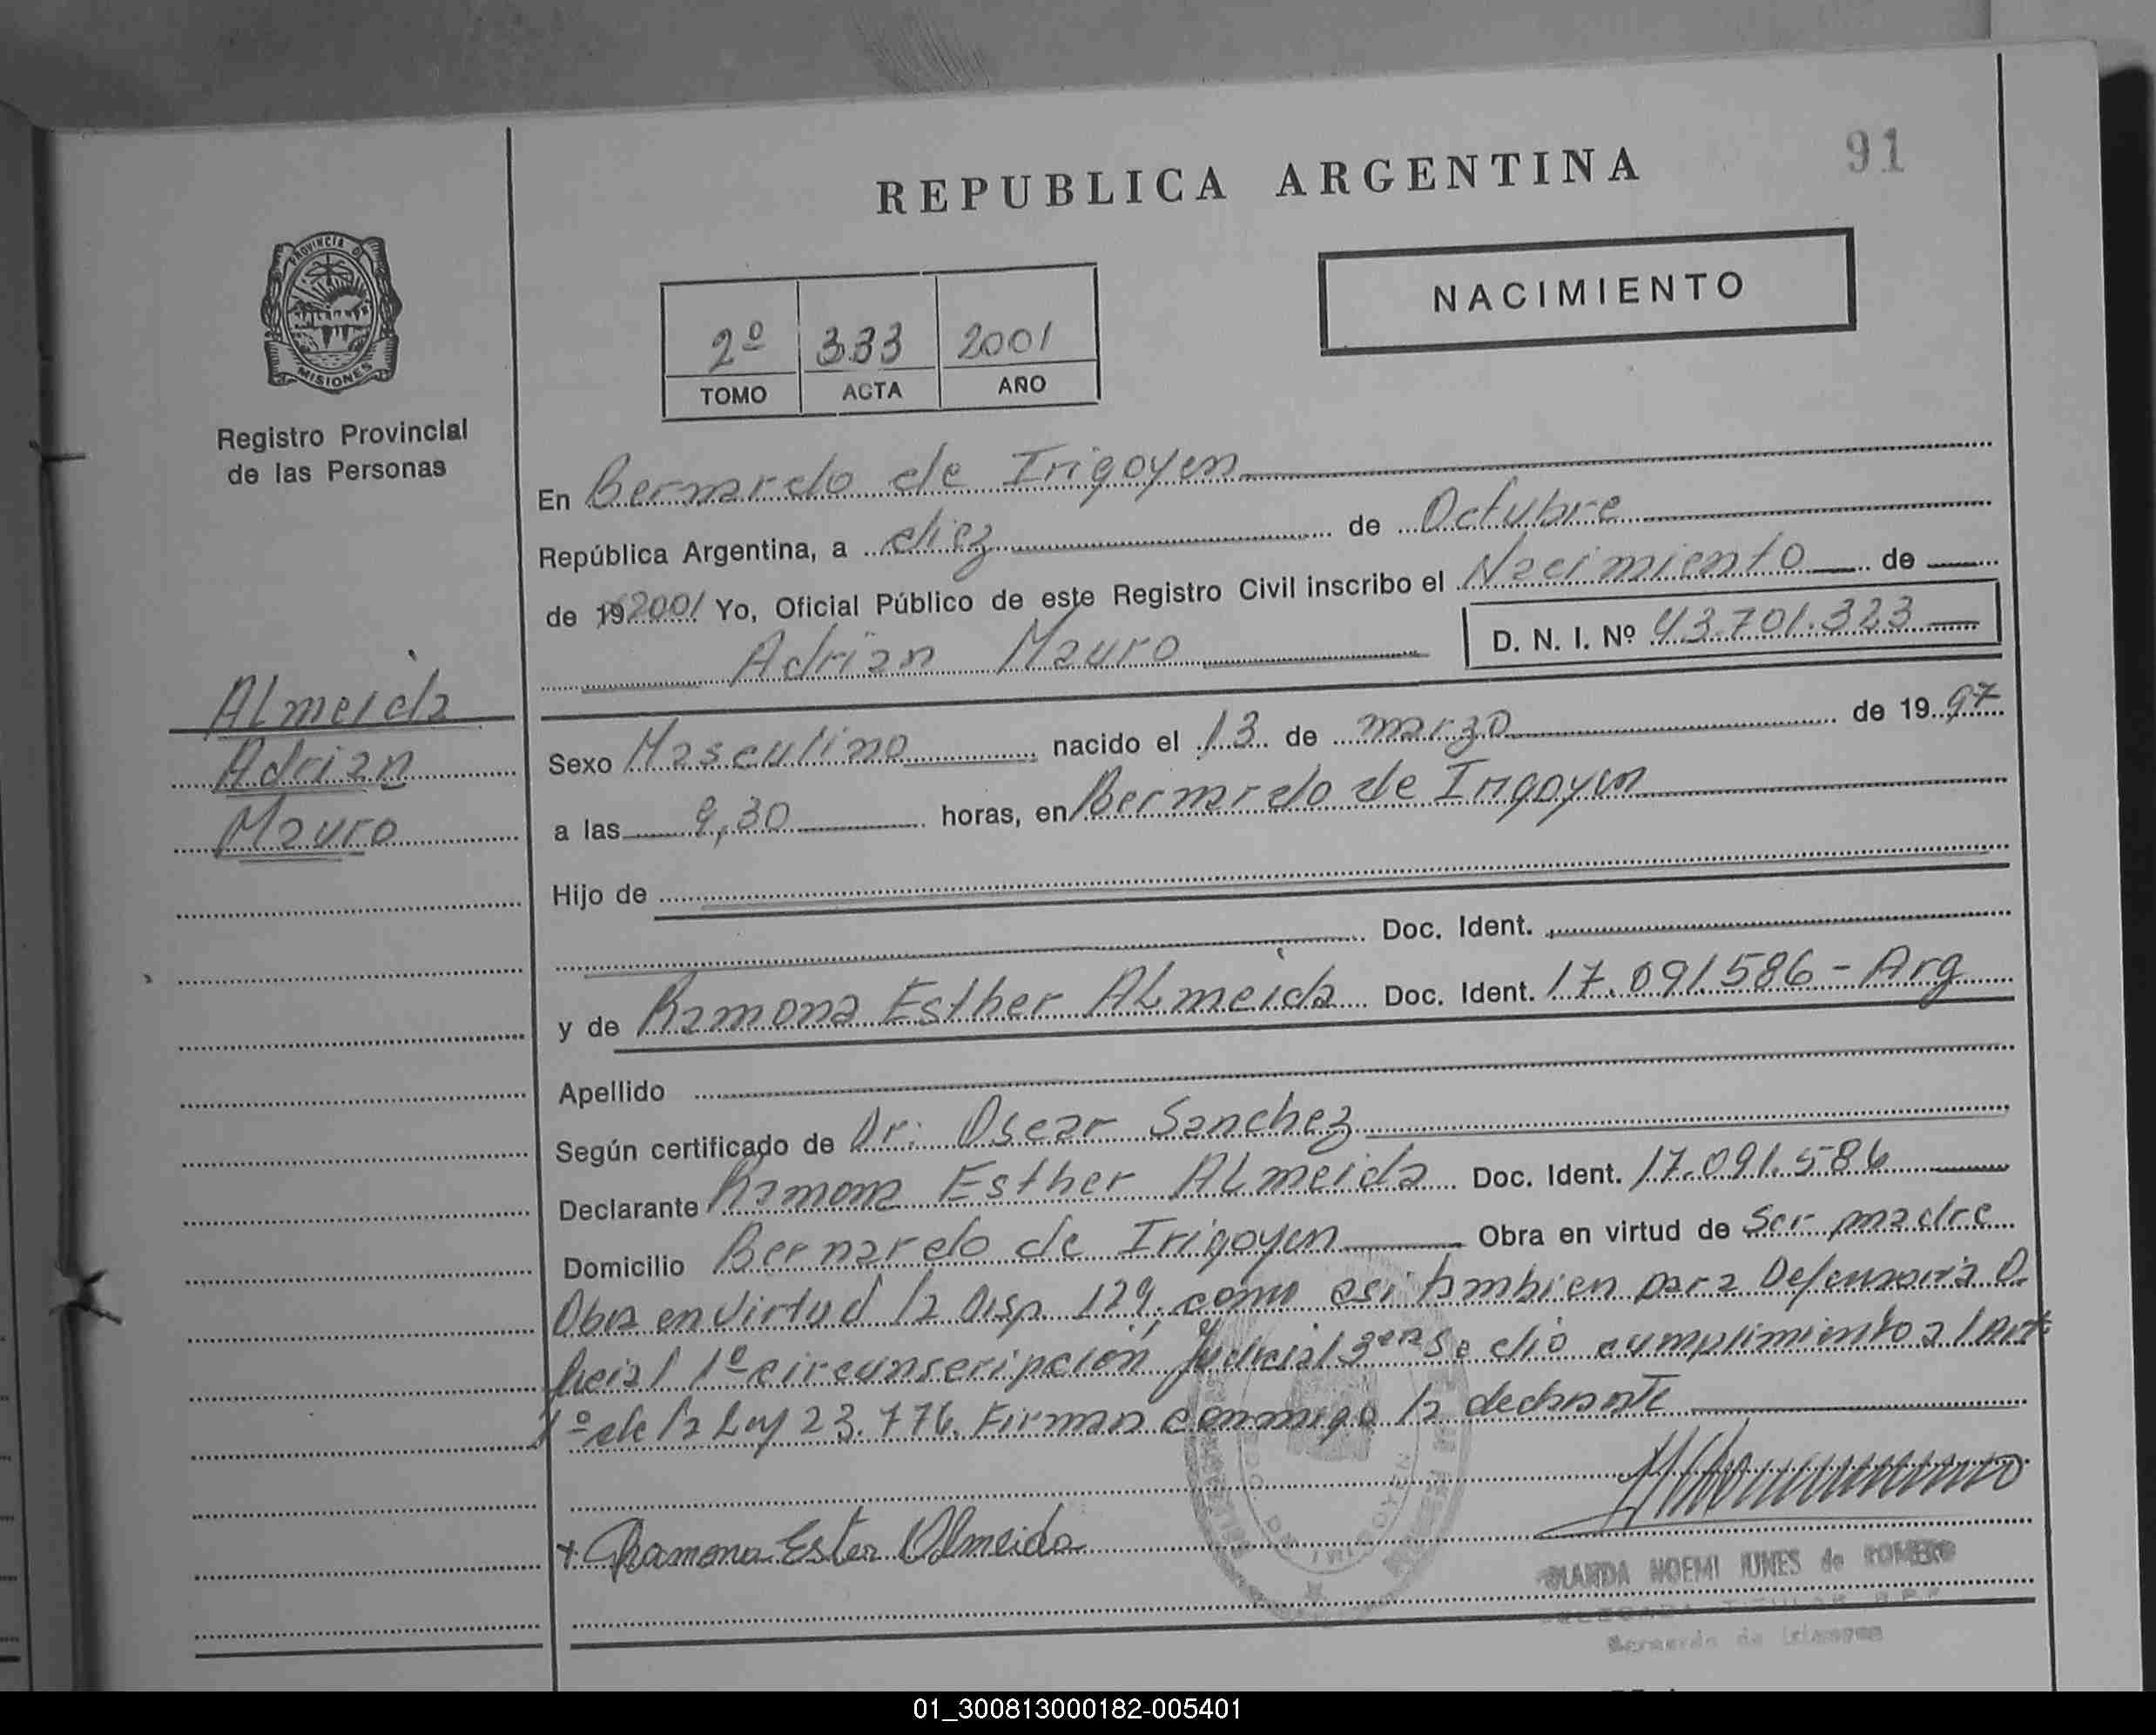 91
REPUBLICA ARGENTINA
NACIMIENTO
PROVINCIA DE
MISIONES
Registro Provincial
de las Personas
2º 333 2001
TOMO ACTA AÑO
En Bernardo de Irigoyen
República Argentina, a diez de Octubre
de 192001 Yo, Oficial Público de este Registro Civil inscribo el Nacimiento de
Adrian Mauro D. N. I. Nº 43.701.323
Almeida
Adrian
Mauro
Sexo Masculino nacido el 13 de marzo de 1997
a las 9,30 horas, en Bernardo de Irigoyen
Hijo de
Doc. Ident.
y de Ramona Esther Almeida Doc. Ident. 17.091.586 - Arg
Apellido
Según certificado de Dr. Oscar Sanchez
Declarante Ramona Esther Almeida Doc. Ident. 17.091.586
Domicilio Bernardo de Irigoyen Obra en virtud de Ser madre
Obra en virtud la Disp. 129, como asi tambien para Defensoria O
ficial 1º circunscripción Judicial 3era Se dió cumplimiento al Art
1º de la Ley 23.776. Firman conmigo la declarante
+ Ramona Ester Almeida
NOEMI de ROMERO
Bernardo de Irigoyen
01_300813000182-005401